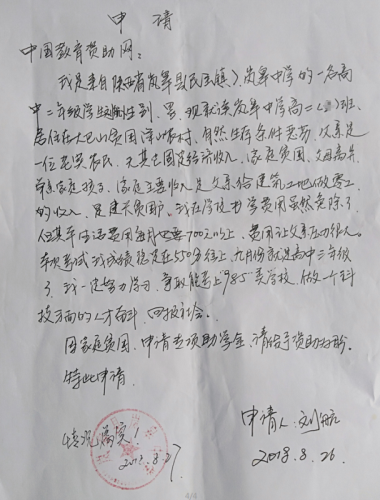 申 请
中国教育资助网:
我是来自陕西省岚皋县民主镇、岚皋中学的一名高
中二年级学生 性别、男、现就读岚皋中学高二(2)班、
居住在大巴山贫困深山农村、自然生存条件恶劣、父亲是
一位老实农民、无其它固定经济收入、家庭贫困、父母离异
单亲家庭孩子、家庭主要收入是父亲给建筑工地做零工
的收入、是建卡贫困户、我在学校书学费用虽然免除了、
但其平生活费用每月也要700元以上、费用让父亲压力很大。
本次考试我成绩稳定在550分往上、九月份就是高中三年级
了、我一定努力学习、争取能考上985类学校、做一个科
技方面的人才 、回报社会。
因家庭贫困、申请专项助学金、请给予资助 。
特此申请
情况属实!
2018.8.27.
申请人:刘航
2018.8.26.